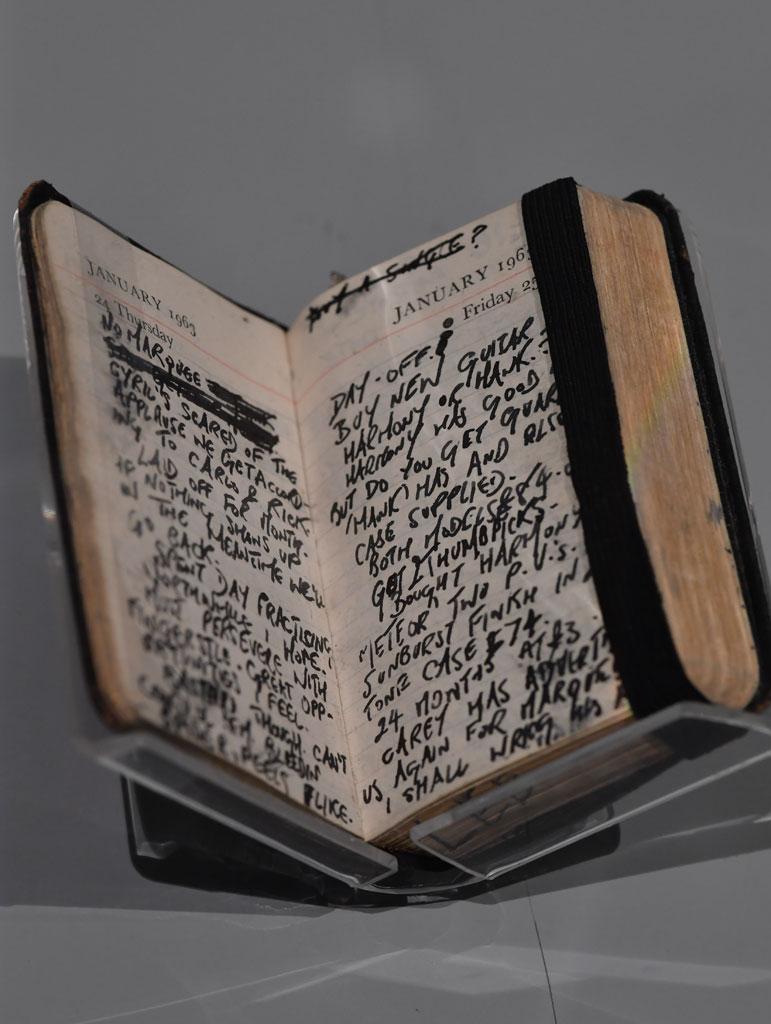 JANUARY 1963
24 Thursday
NO MARQUEE
CYRIL'S SCARED OF THE
APPLAUSE WE GET ACCORD
ING TO CARLO & RICK
LAID OFF FOR MONTH.
IF NOTHING SHOWS UP
IN THE MEANTIME WE'LL
GO BACK.
SPENT DAY PRACTISING,
WORTHWHILE I HOPE.
MUST PERSEVERE WITH
FINGERSTYLE. GREAT OPP-
ORTUNITIES I FEEL
THOUGH. CAN'T
BLEEDIN
FEELS LIKE.
A
?
JANUARY 196
Friday 25
DAY-OFF.
BUY NEW GUITAR
HARMONY OR HAWK.
HARMONY WAS GOOD
BUT DO YOU GET GUAR
(HAWK) HAS AND ALSO
CASE SUPPLIED.
BOTH MODELS £84.
GOT 2 THUMBPICKS.
BOUGHT HARMONY
METEOR TWO P.U.S.
SUNBURST FINISH IN
TONE CASE £74.
24 MONTHS AT £3.
CAREY HAS ADVERT
US AGAIN FOR MARQUE
I SHALL WRING HIS